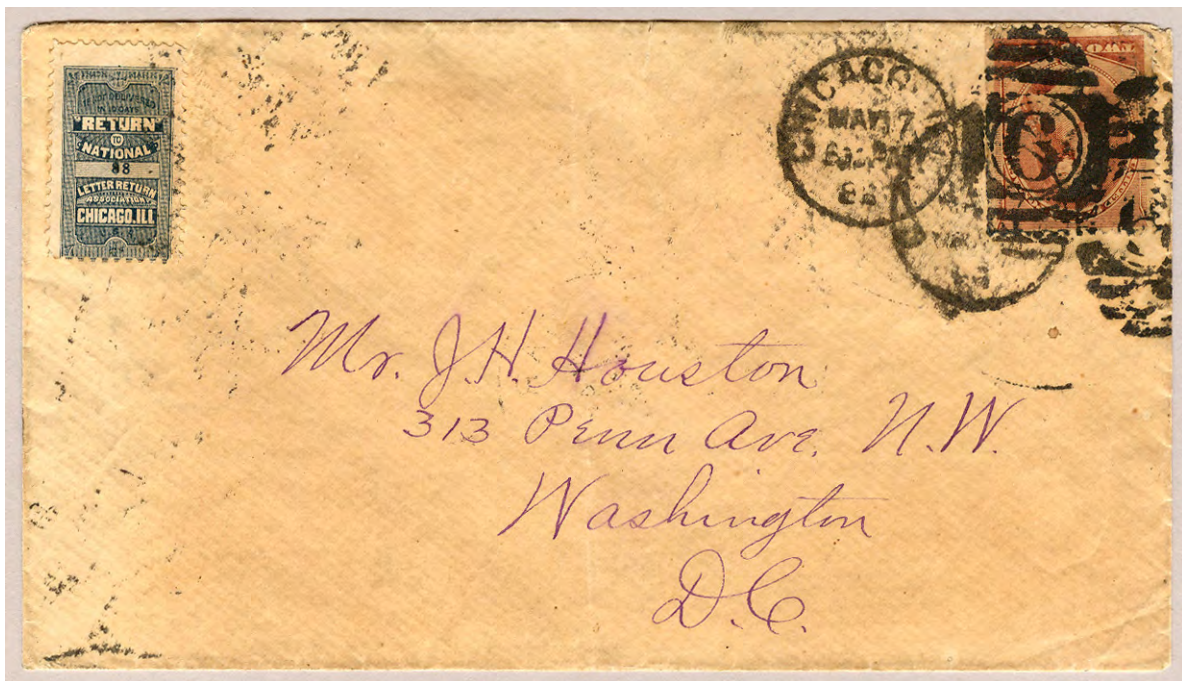 RETURN STAMP
IF NOT DELIVERED
IN 10 DAYS
"RETURN"
TO
NATIONAL
88
LETTER RETURN
ASSOCIATION
CHICAGO. ILL
CHICAGO
MAY 17
88
TWO
Mr. J. H. Houston
313 Penn Ave. N. W.
Washington
D. C.